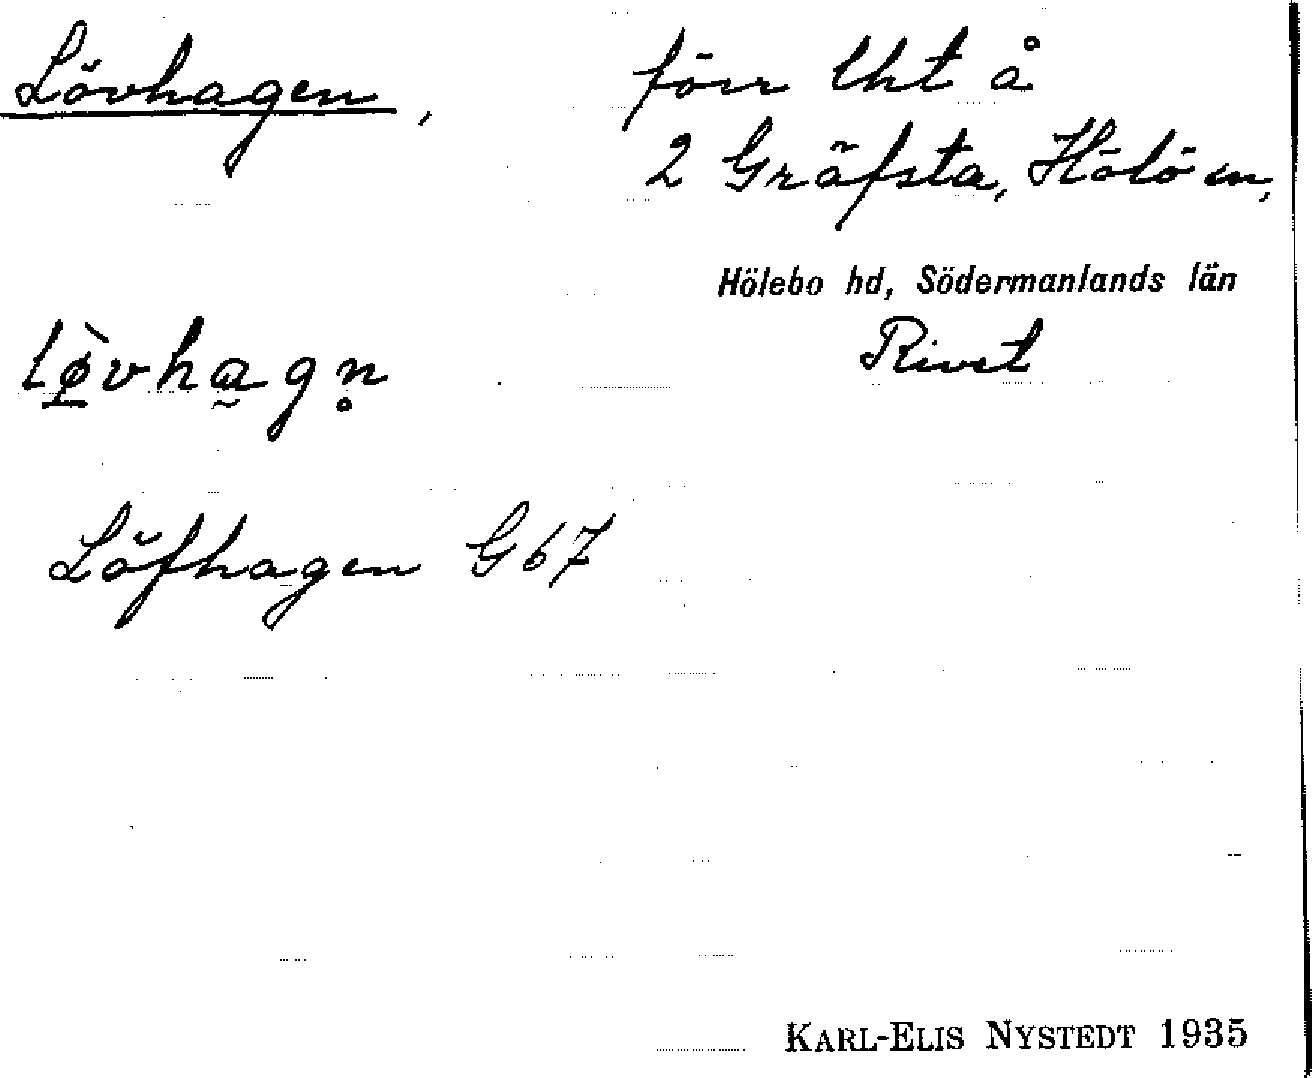 Lövhagen, förr lht å
2 Gräfsta, Hölö sn,
Hölebo hd, Södermanlands län
lø̀vhagn̥ Rivet
Löfhagen G 67
KARL-ELIS NYSTEDT 1935